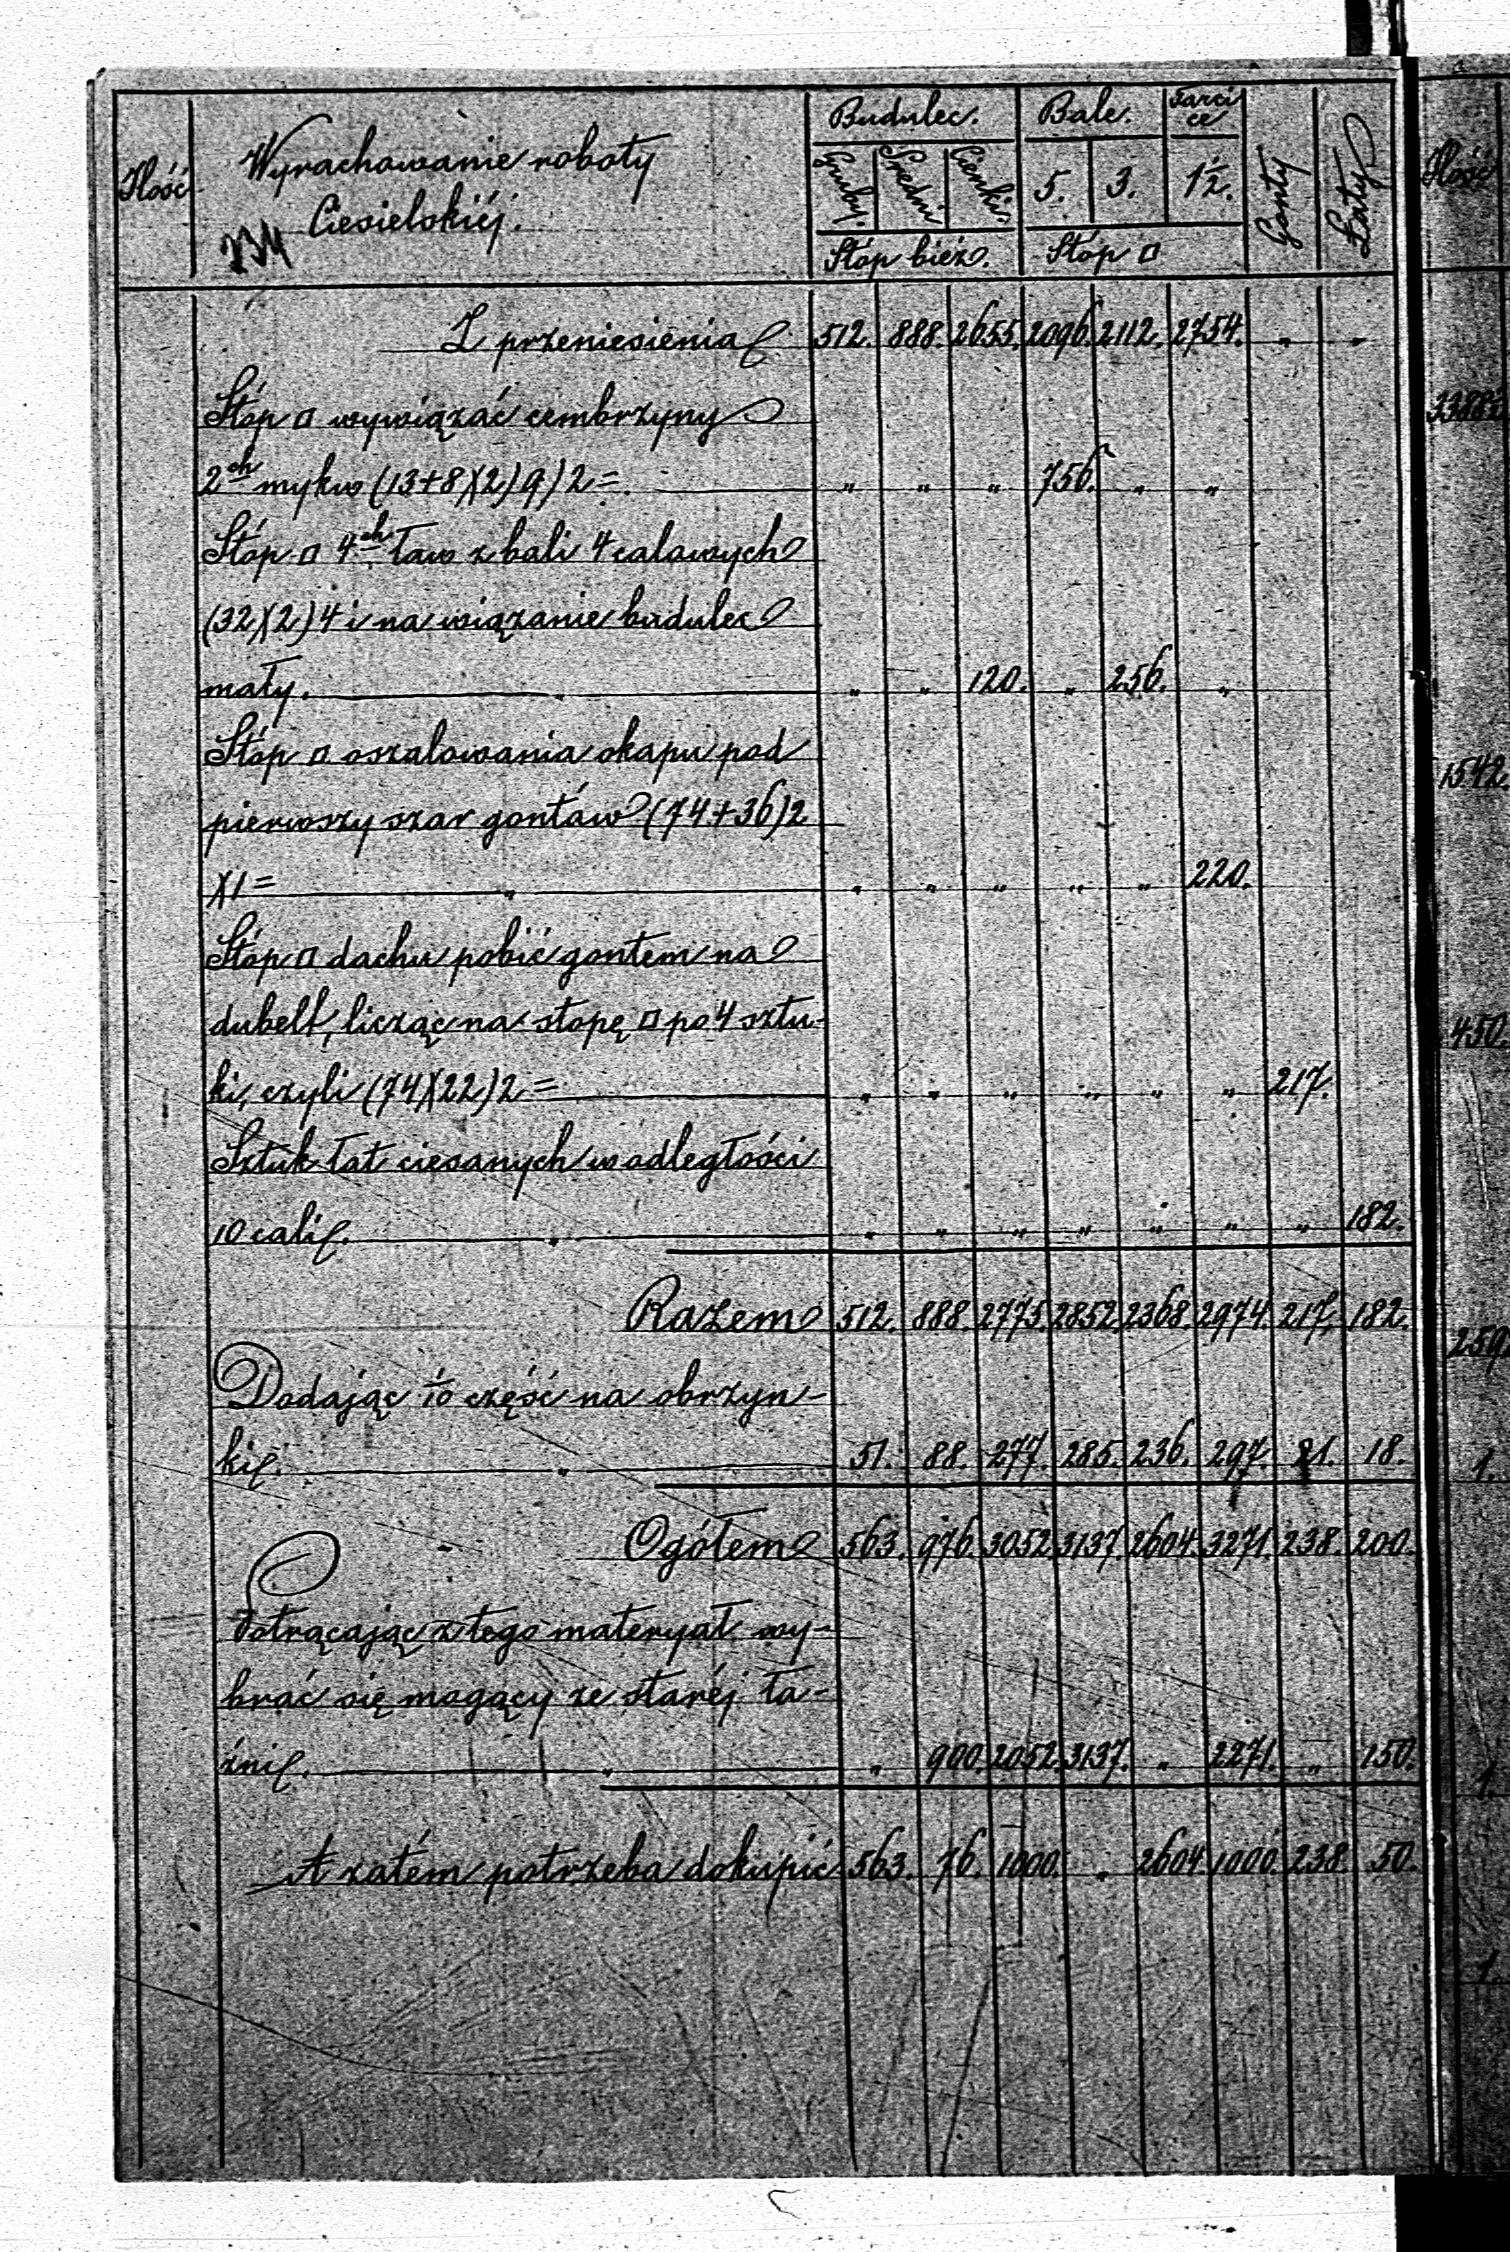 Ilość
Wyrachowanie roboty
Ciesielskiéj.
234
Budulec.
Bale.
Tarci
ce
Gruby.
Średni
Cienki.
5.
3.
1½.
Gonty
Łaty
Stóp bież.
Stóp □
Z przeniesienia 512. 888. 2655. 2096. 2112. 2754. " "
Stóp □ wywiązać cembrzyny
2ch mykw (13+8)(2)9)2=. " " " 756. " "
Stóp □ 4ch ław z bali 4 calowych
(32)(2)4 i na wiązanie budulec
mały. " " " 120. " 256. "
Stóp □ oszalowania okapu pod
pierwszy szar gontów (74+36)2
X1= " " " " " " 220.
Stóp □ dachu pobić gontem na
dubelt, licząc na stopę □ po 4 sztu-
ki, czyli (74)(22)2= " " " " " " 217.
Sztuk łat ciesanych w odległości
10 cali. " " " " " " " " 182.
Razem 512. 888. 2775. 2852. 2368. 2974. 217. 182.
Dodając 1/10 część na obrzyn-
ki. " 51. 88. 277. 285. 236. 297. 21. 18.
Ogółem 563. 976. 3052. 3137. 2604. 3271. 238. 200.
Potrącając z tego materyał wy-
brać się mogący ze staréj ła-
źni. " " 900. 2052. 3137. " 2271. " 150.
A zatém potrzeba dokupić 563. 76. 1000. " 2604. 1000. 238. 50.
Ilość
1542
450.
259
1.
1
1.